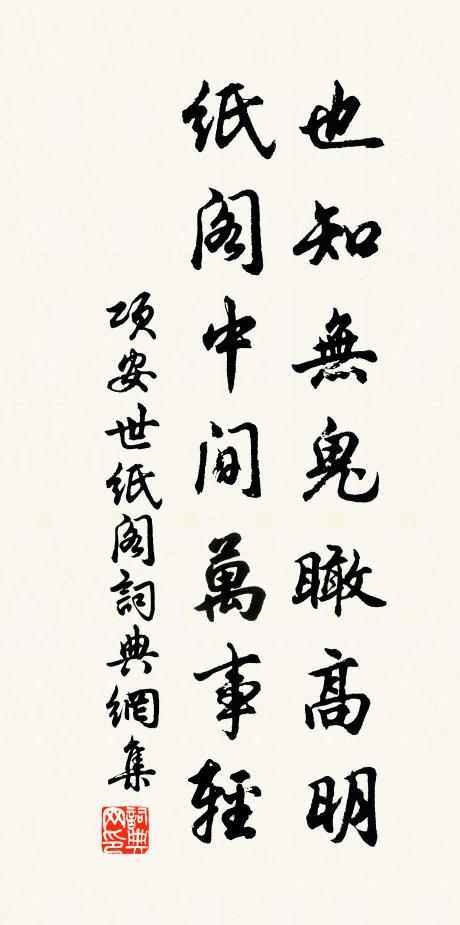 也知無鬼瞰高明
紙閣中間萬事輕
項安世紙閣詞典網集
詞典网印